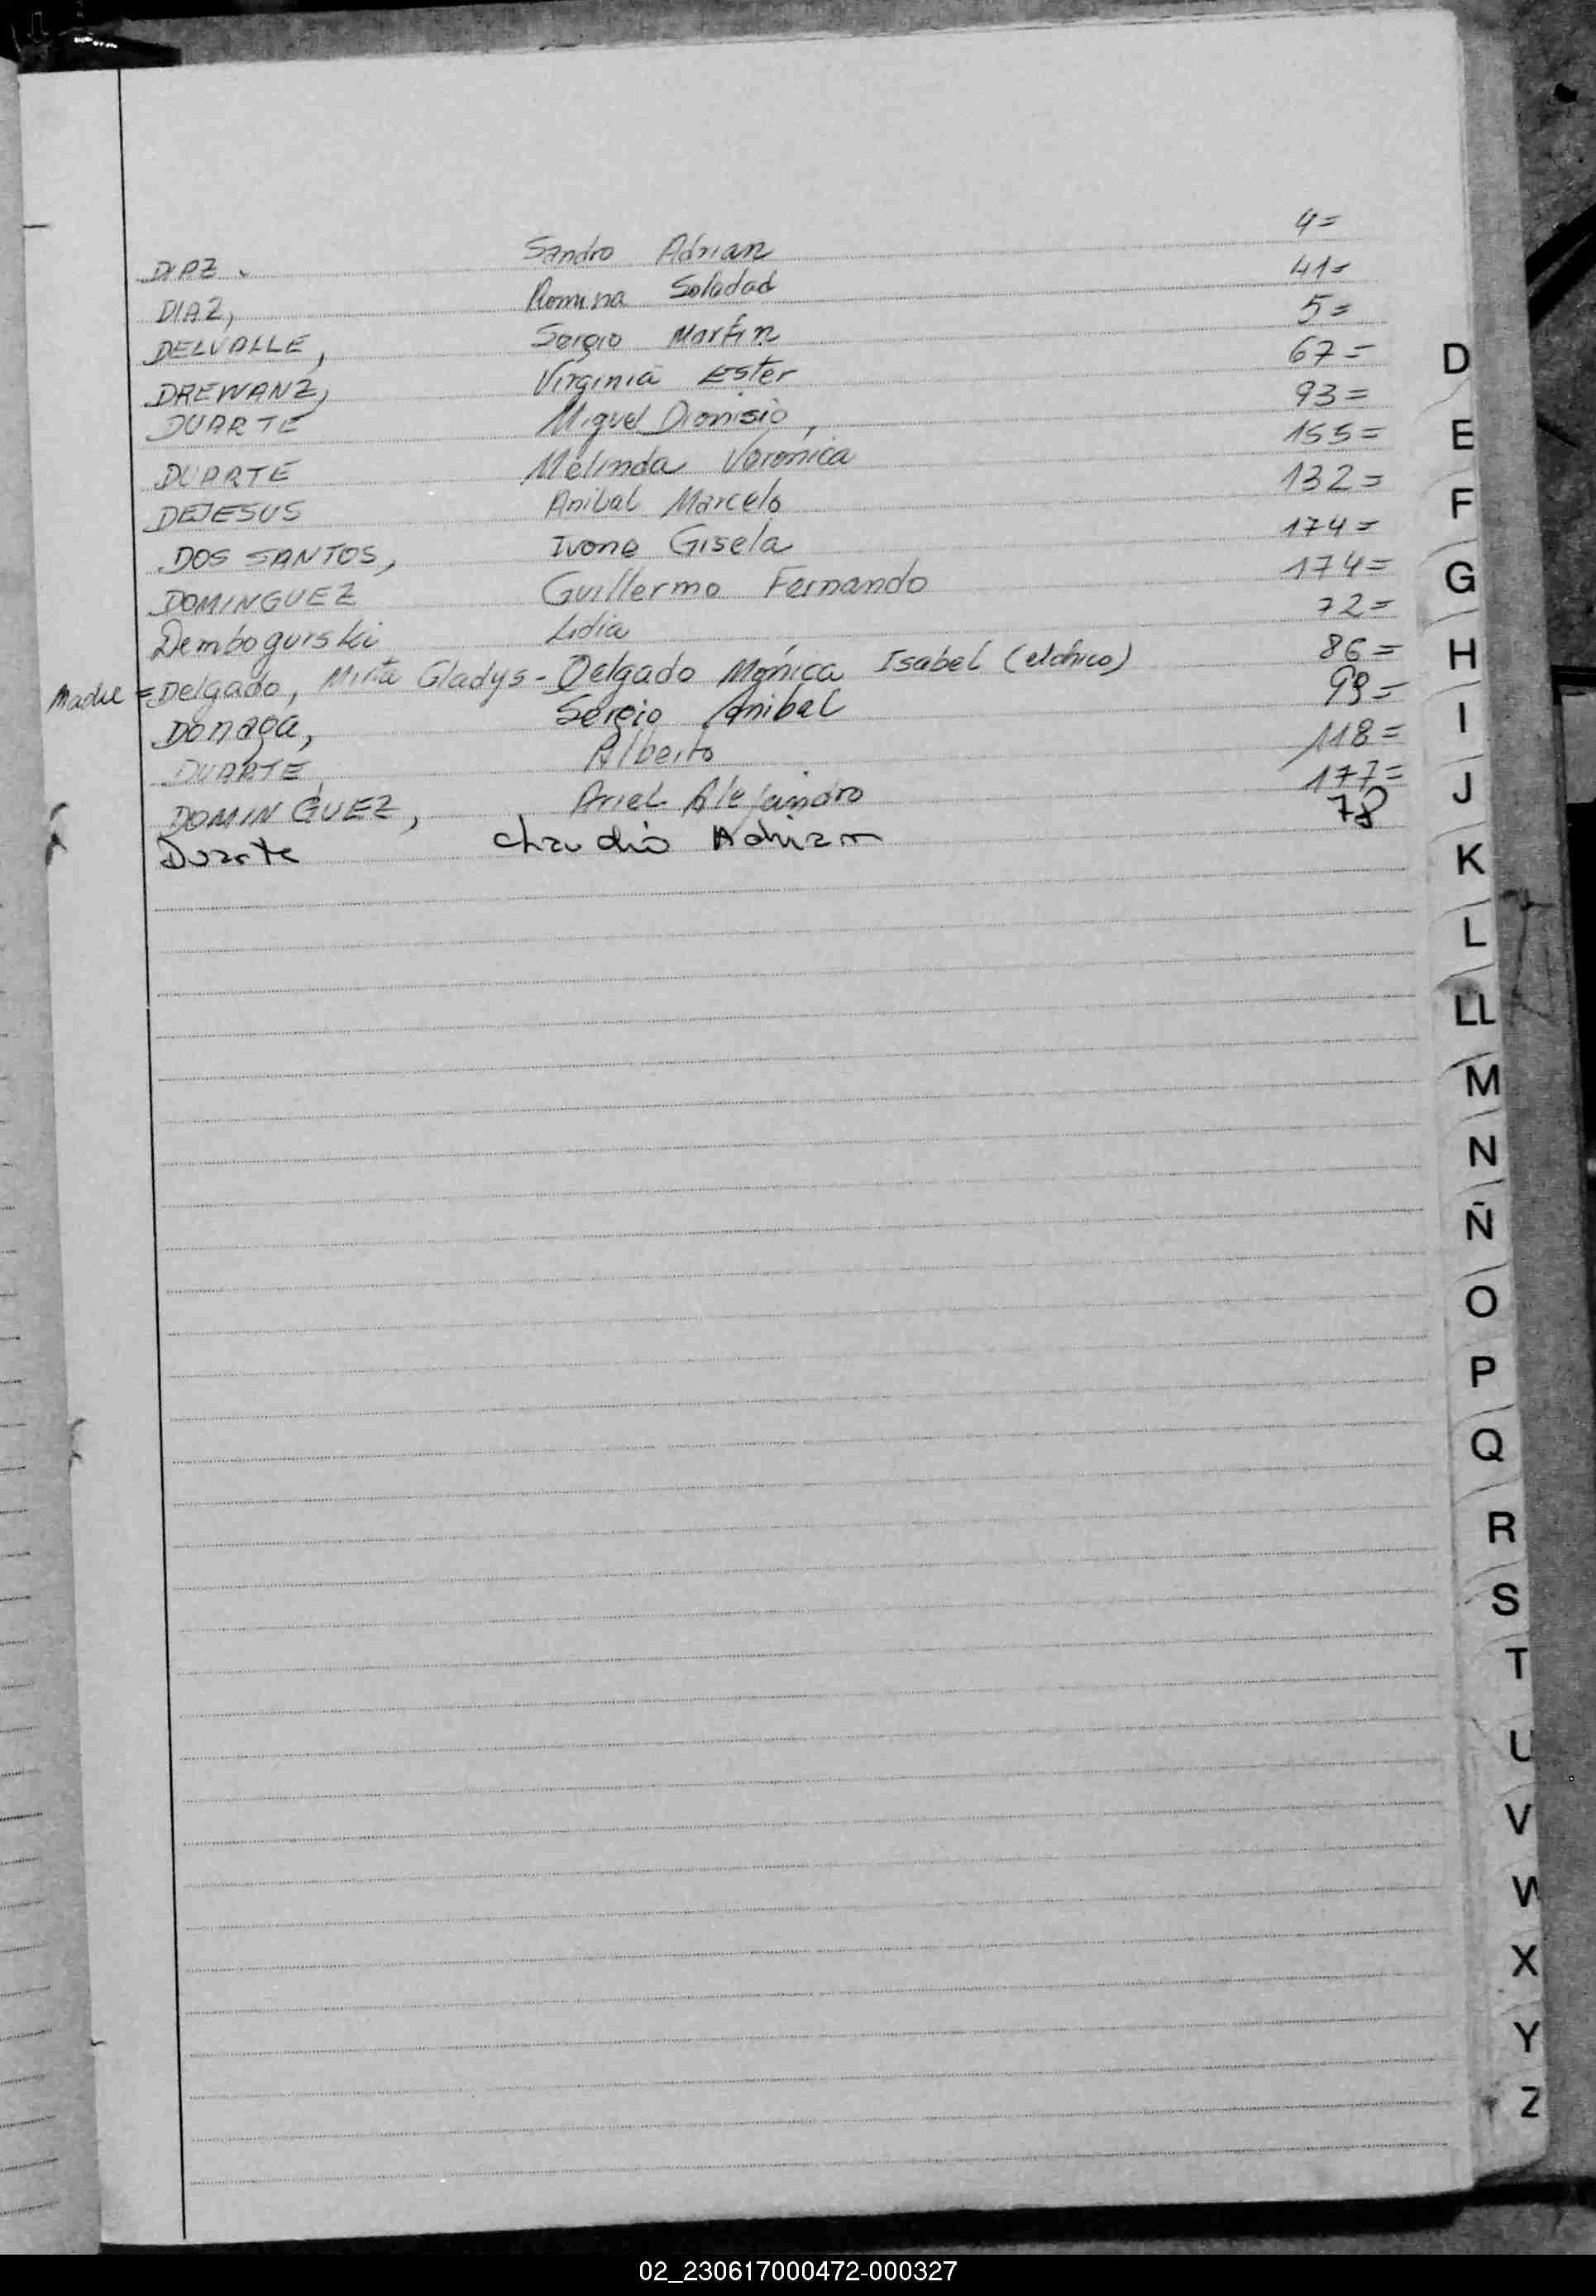 DIAZ. Sandro Adrian 4=
DIAZ, Romina Soledad 41=
DELVALLE, Sergio Martin 5=
DREWANZ, Virginia Ester 67=
DUARTE Miguel Dionisio, 93=
DUARTE Melinda Veronica 155=
DEJESUS Anibal Marcelo 132=
DOS SANTOS, Ivone Gisela 174=
DOMINGUEZ Guillermo Fernando 174=
Dembogurski Lidia 72=
Madre = Delgado, Mirta Gladys - Delgado Mónica Isabel (el chico) 86=
Donaga, Sergio Anibal 99=
DUARTE, Alberto 118=
DOMINGUEZ, Ariel Alejandro 177=
Duarte Claudio Adrian 78
D
E
F
G
H
I
J
K
L
LL
M
N
Ñ
O
P
Q
R
S
T
U
V
W
X
Y
Z
02_230617000472-000327